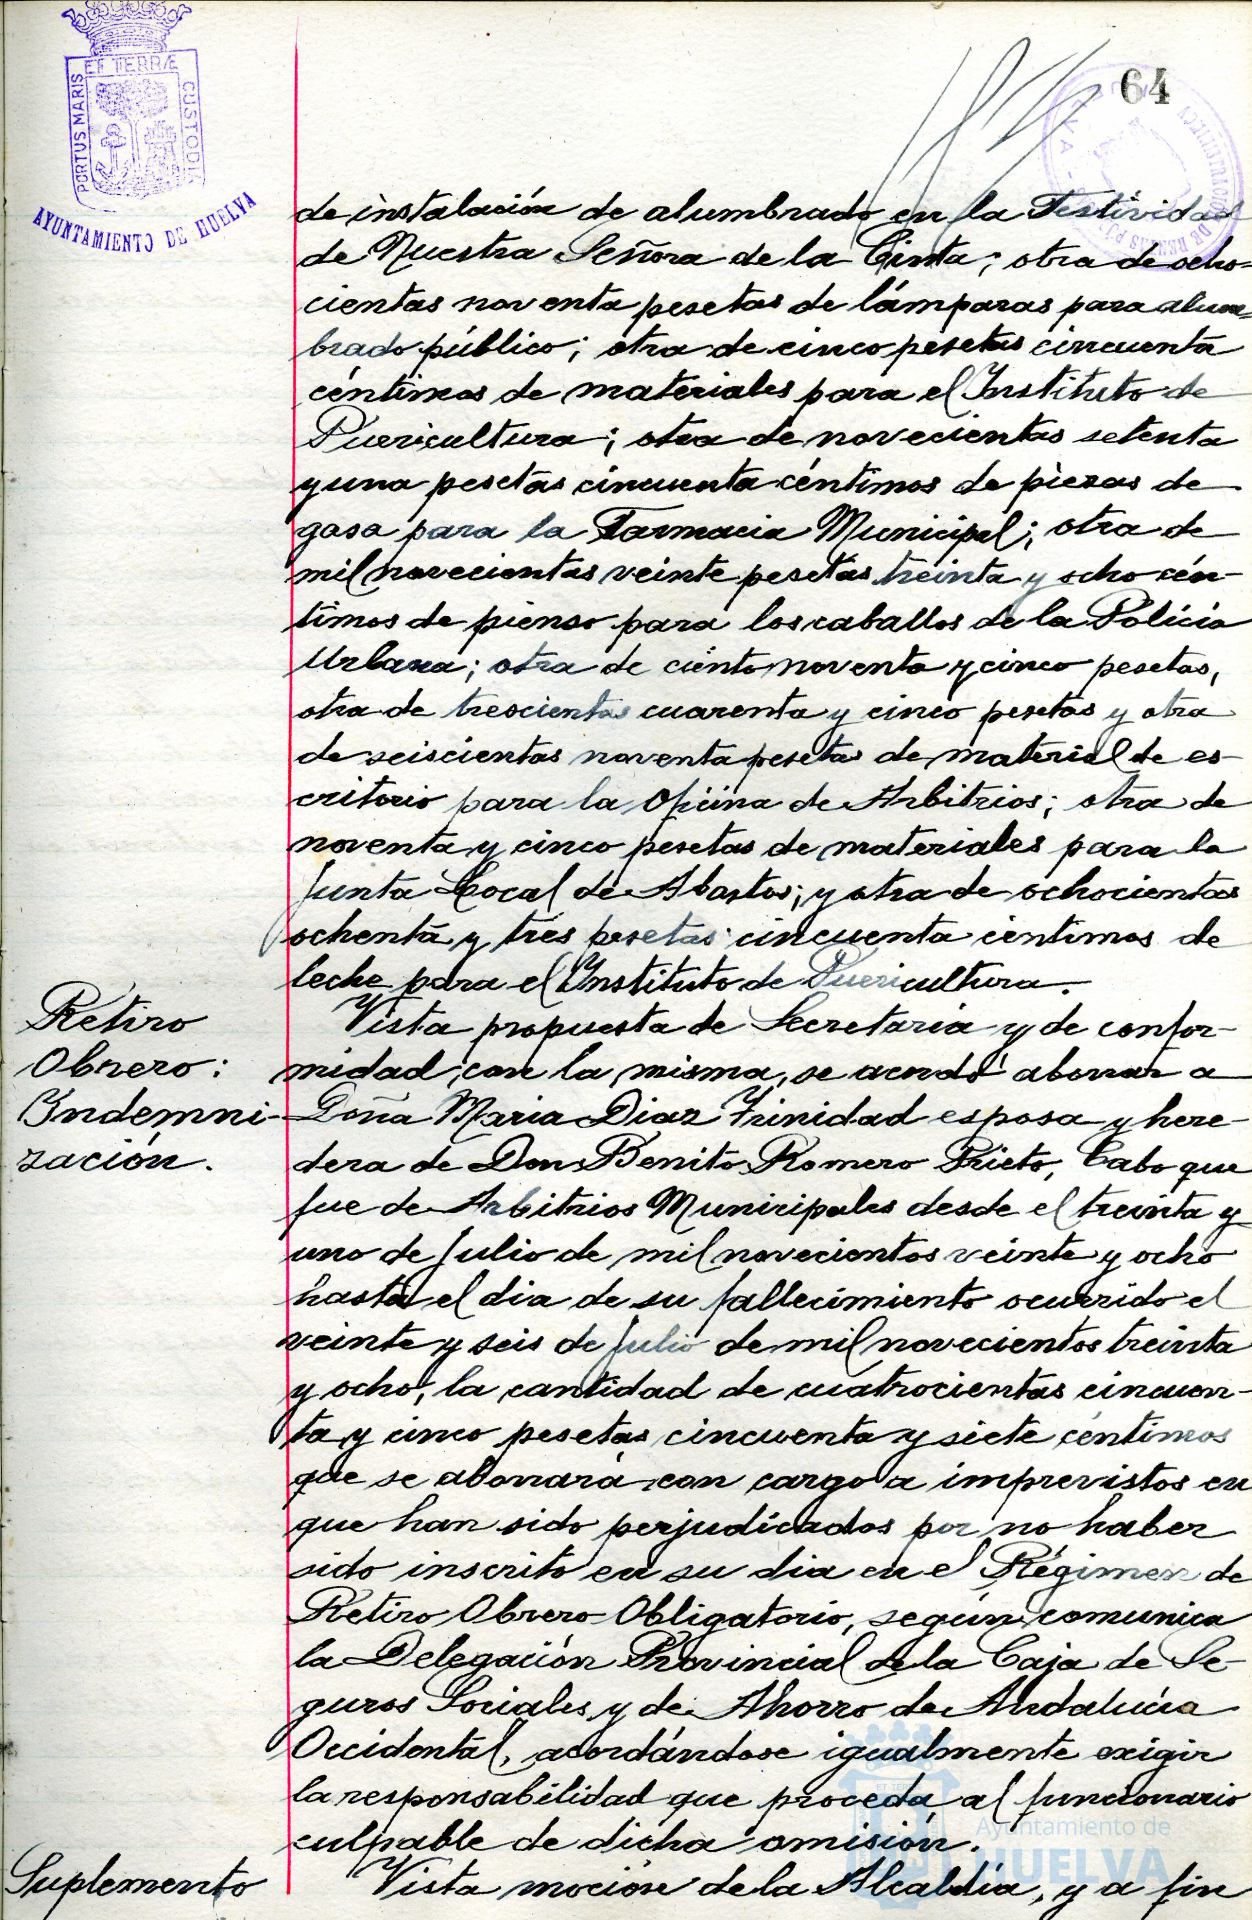 PORTUS MARIS ET TERRÆ CUSTODIA
AYUNTAMIENTO DE HUELVA
64
de instalación de alumbrado en la Festividad
de Nuestra Señora de la Cinta; otra de ocho=
cientas noventa pesetas de lámparas para alum=
brado público; otra de cinco pesetas cincuenta
céntimos de materiales para el Instituto de
Puericultura; otra de novecientas setenta
y una pesetas cincuenta céntimos de piezas de
gasa para la Farmacia Municipal; otra de
mil novecientas veinte pesetas treinta y ocho cén-
timos de pienso para los caballos de la Policía
Urbana; otra de ciento noventa y cinco pesetas,
otra de trescientas cuarenta y cinco pesetas y otra
de seiscientas noventa pesetas de material de es-
critorio para la Oficina de Arbitrios; otra de
noventa y cinco pesetas de materiales para la
Junta Local de Abastos; y otra de ochocientas
ochenta y tres pesetas cincuenta centimos de
leche para el Instituto de Puericultura.
Retiro
Obrero:
Indemni-
zación.
Vista propuesta de Secretaria y de confor-
midad con la misma, se acordó abonar a
Doña Maria Diaz Trinidad esposa y here-
dera de Don Benito Romero Prieto, Cabo que
fue de Arbitrios Municipales desde el treinta y
uno de Julio de mil novecientos veinte y ocho
hasta el dia de su fallecimiento ocurrido el
veinte y seis de Julio de mil novecientos treinta
y ocho, la cantidad de cuatrocientas cincuen-
ta y cinco pesetas cincuenta y siete céntimos
que se abonará con cargo a imprevistos en
que han sido perjudicados por no haber
sido inscrito en su dia en el Régimen de
Retiro Obrero Obligatorio, según comunica
la Delegación Provincial de la Caja de Se-
guros Sociales y de Ahorro de Andalucía
Occidental, acordándose igualmente exigir
la responsabilidad que proceda al funcionario
culpable de dicha omisión.
Suplemento
Vista moción de la Alcaldía, y a fin
Ayuntamiento de
HUELVA